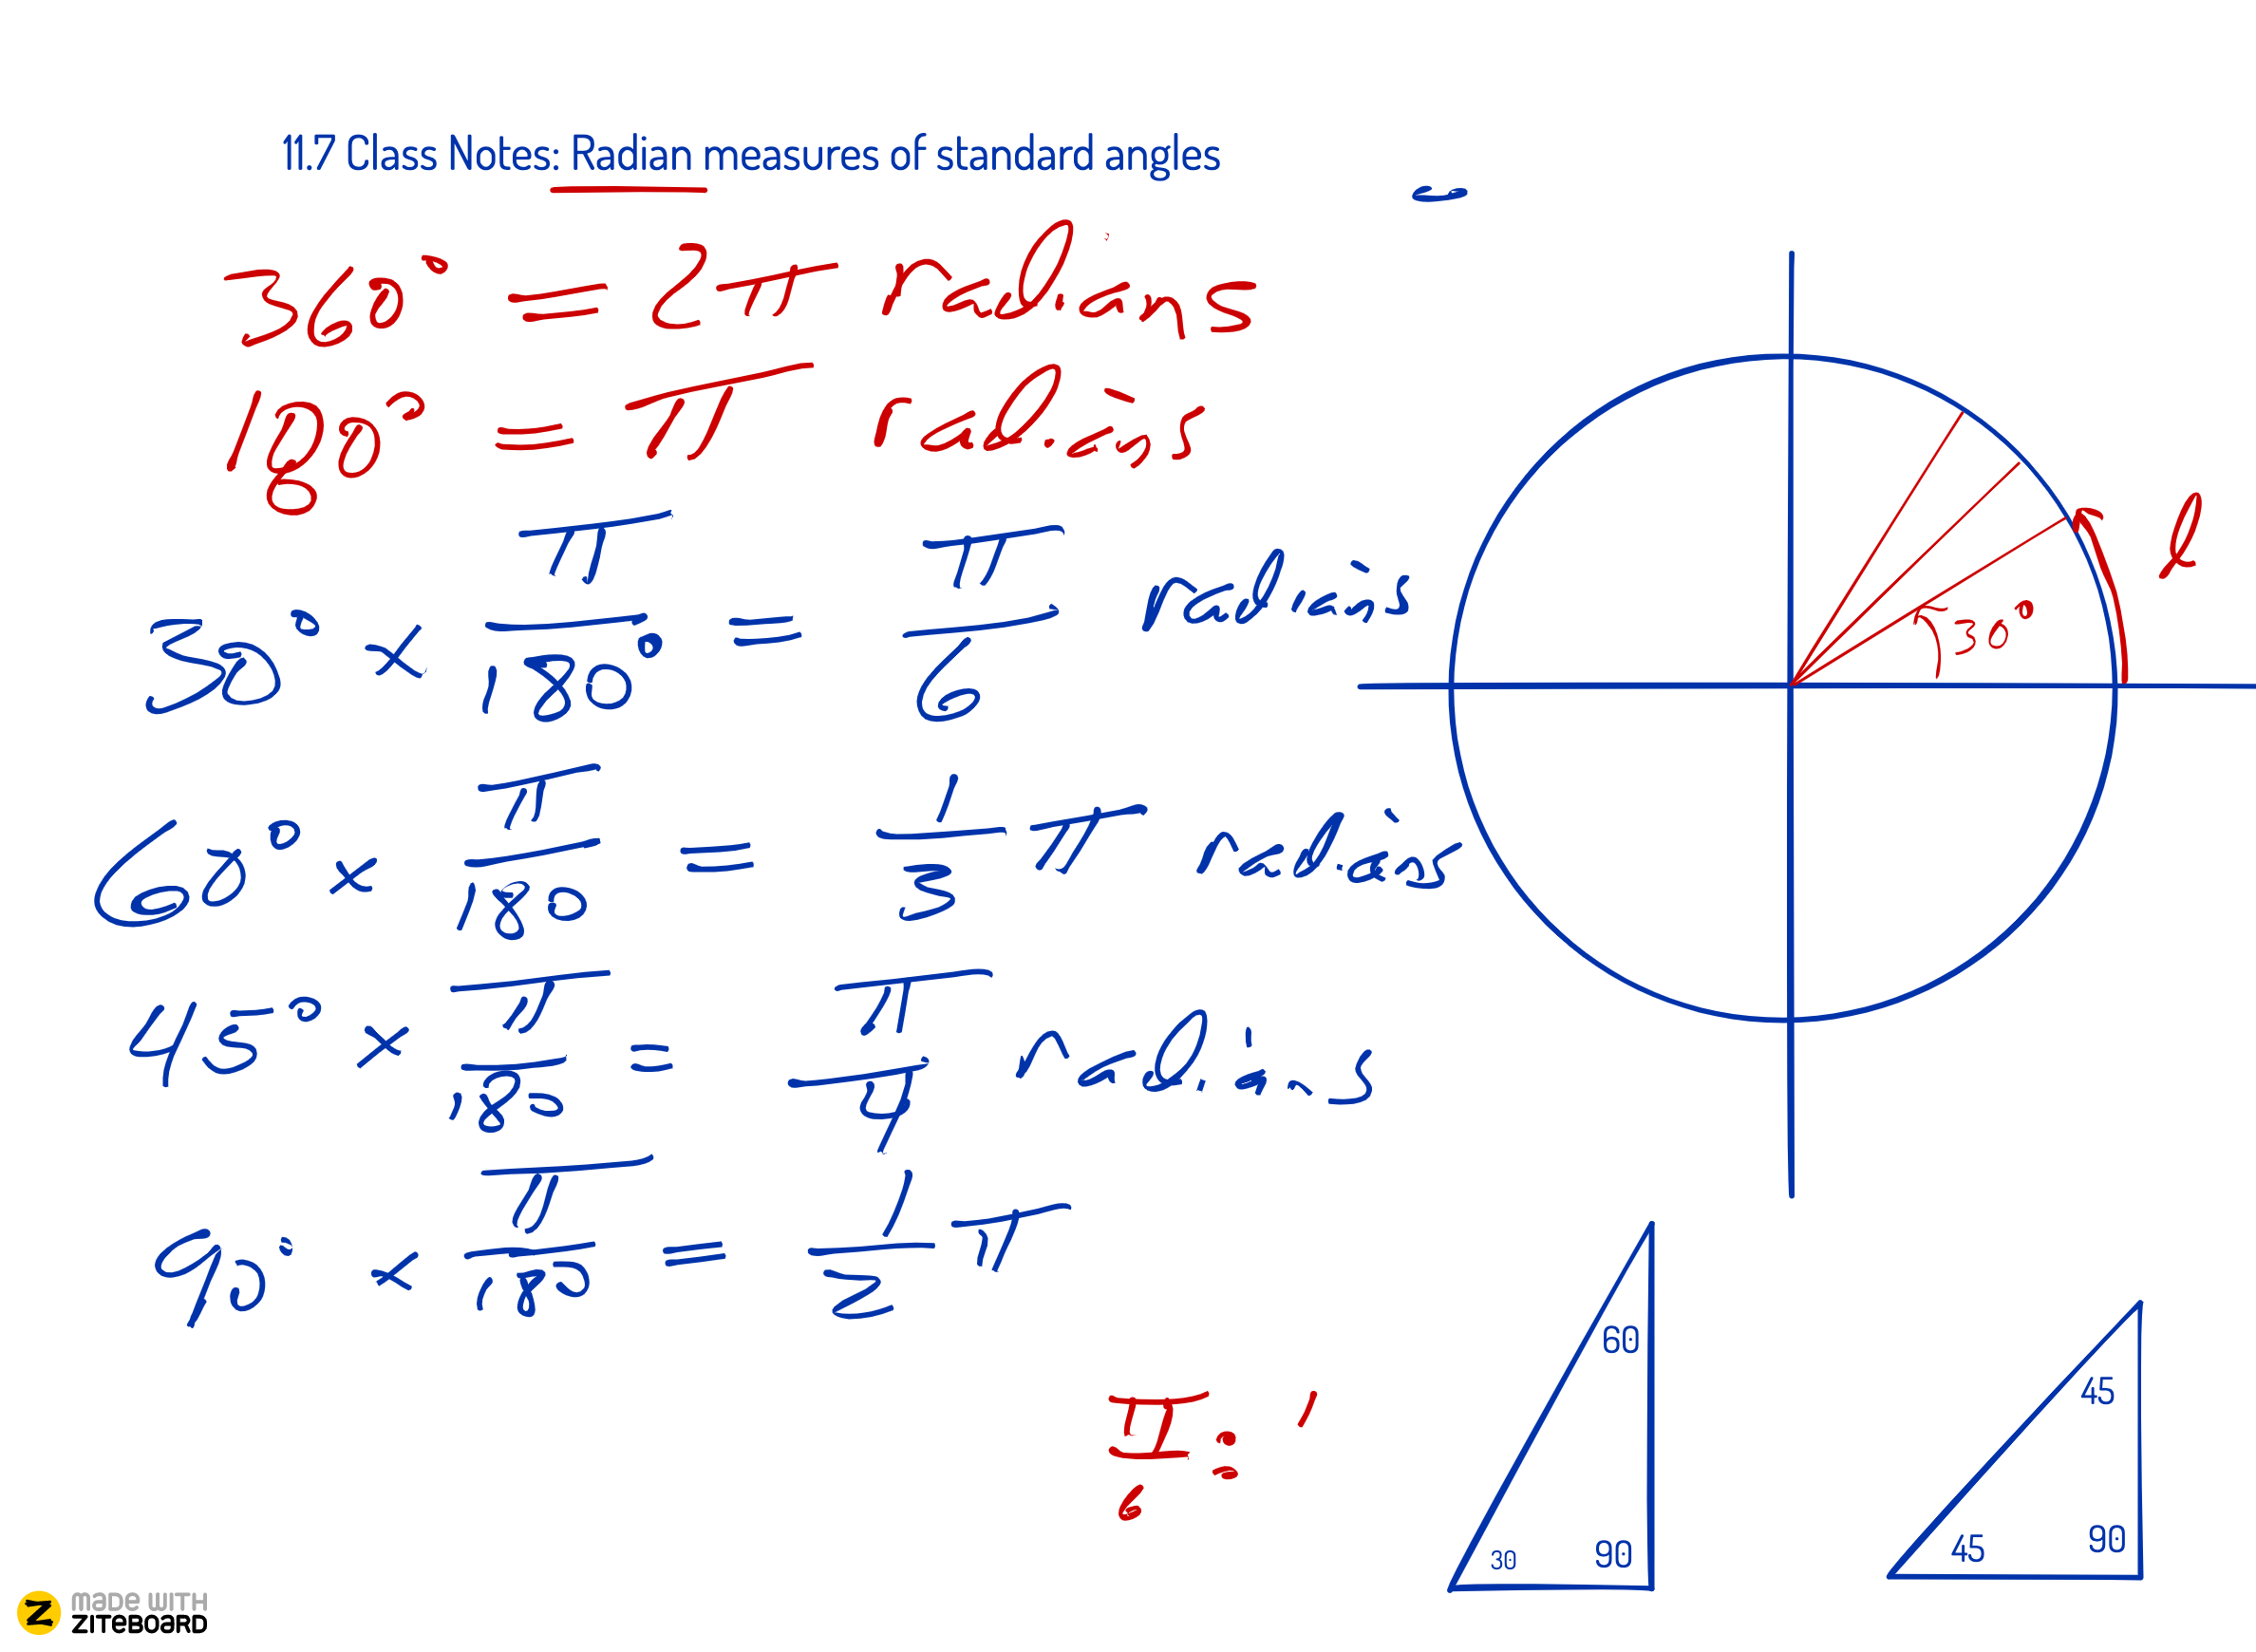 11.7 Class Notes: Radian measures of standard angles
360° = 2π radians
180° = π radians
30° × π/180° = π/6 radians
60° × π/180 = 1/3 π radians
45° × π/180 = π/4 radians
90° × π/180 = 1/2 π
π/6 =
l
30°
60
30
90
45
45
90
MADE WITH
ZITEBOARD